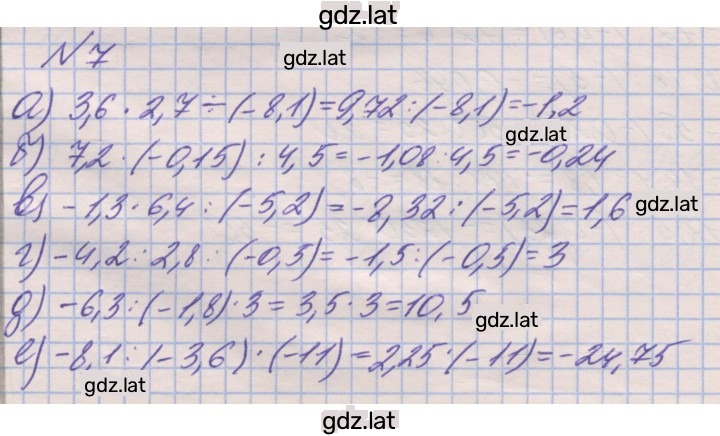 gdz.lat
№7
gdz.lat
а) 3,6 · 2,7 ÷ (-8,1) = 9,72 : (-8,1) = -1,2
gdz.lat
б) 7,2 · (-0,15) : 4,5 = -1,08 : 4,5 = -0,24
в) -1,3 · 6,4 : (-5,2) = -8,32 : (-5,2) = 1,6
gdz.lat
г) -4,2 : 2,8 : (-0,5) = -1,5 : (-0,5) = 3
д) -6,3 : (-1,8) · 3 = 3,5 · 3 = 10,5
gdz.lat
е) -8,1 : (-3,6) · (-11) = 2,25 · (-11) = -24,75
gdz.lat
gdz.lat